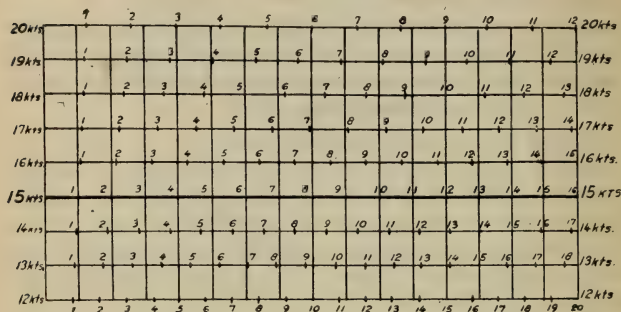 9 2 3 4 5 6 7 8 9 10 11 12
20kts. 20kts.
1 2 3 4 5 6 7 8 9 10 11 12
19kts 19kts
1 2 3 4 5 6 7 8 9 10 11 12 13
18kts 18kts
1 2 3 4 5 6 7 8 9 10 11 12 13 14
17kts 17kts
1 2 3 4 5 6 7 8 9 10 11 12 13 14 15
16kts 16kts.
1 2 3 4 5 6 7 8 9 10 11 12 13 14 15 16
15kts 15KTS
1 2 3 4 5 6 7 8 9 10 11 12 13 14 15 16 17
14kts 14kts.
1 2 3 4 5 6 7 8 9 10 11 12 13 14 15 16 17 18
13kts. 13kts.
12kts 12kts
1 2 3 4 5 6 7 8 9 10 11 12 13 14 15 16 17 18 19 20